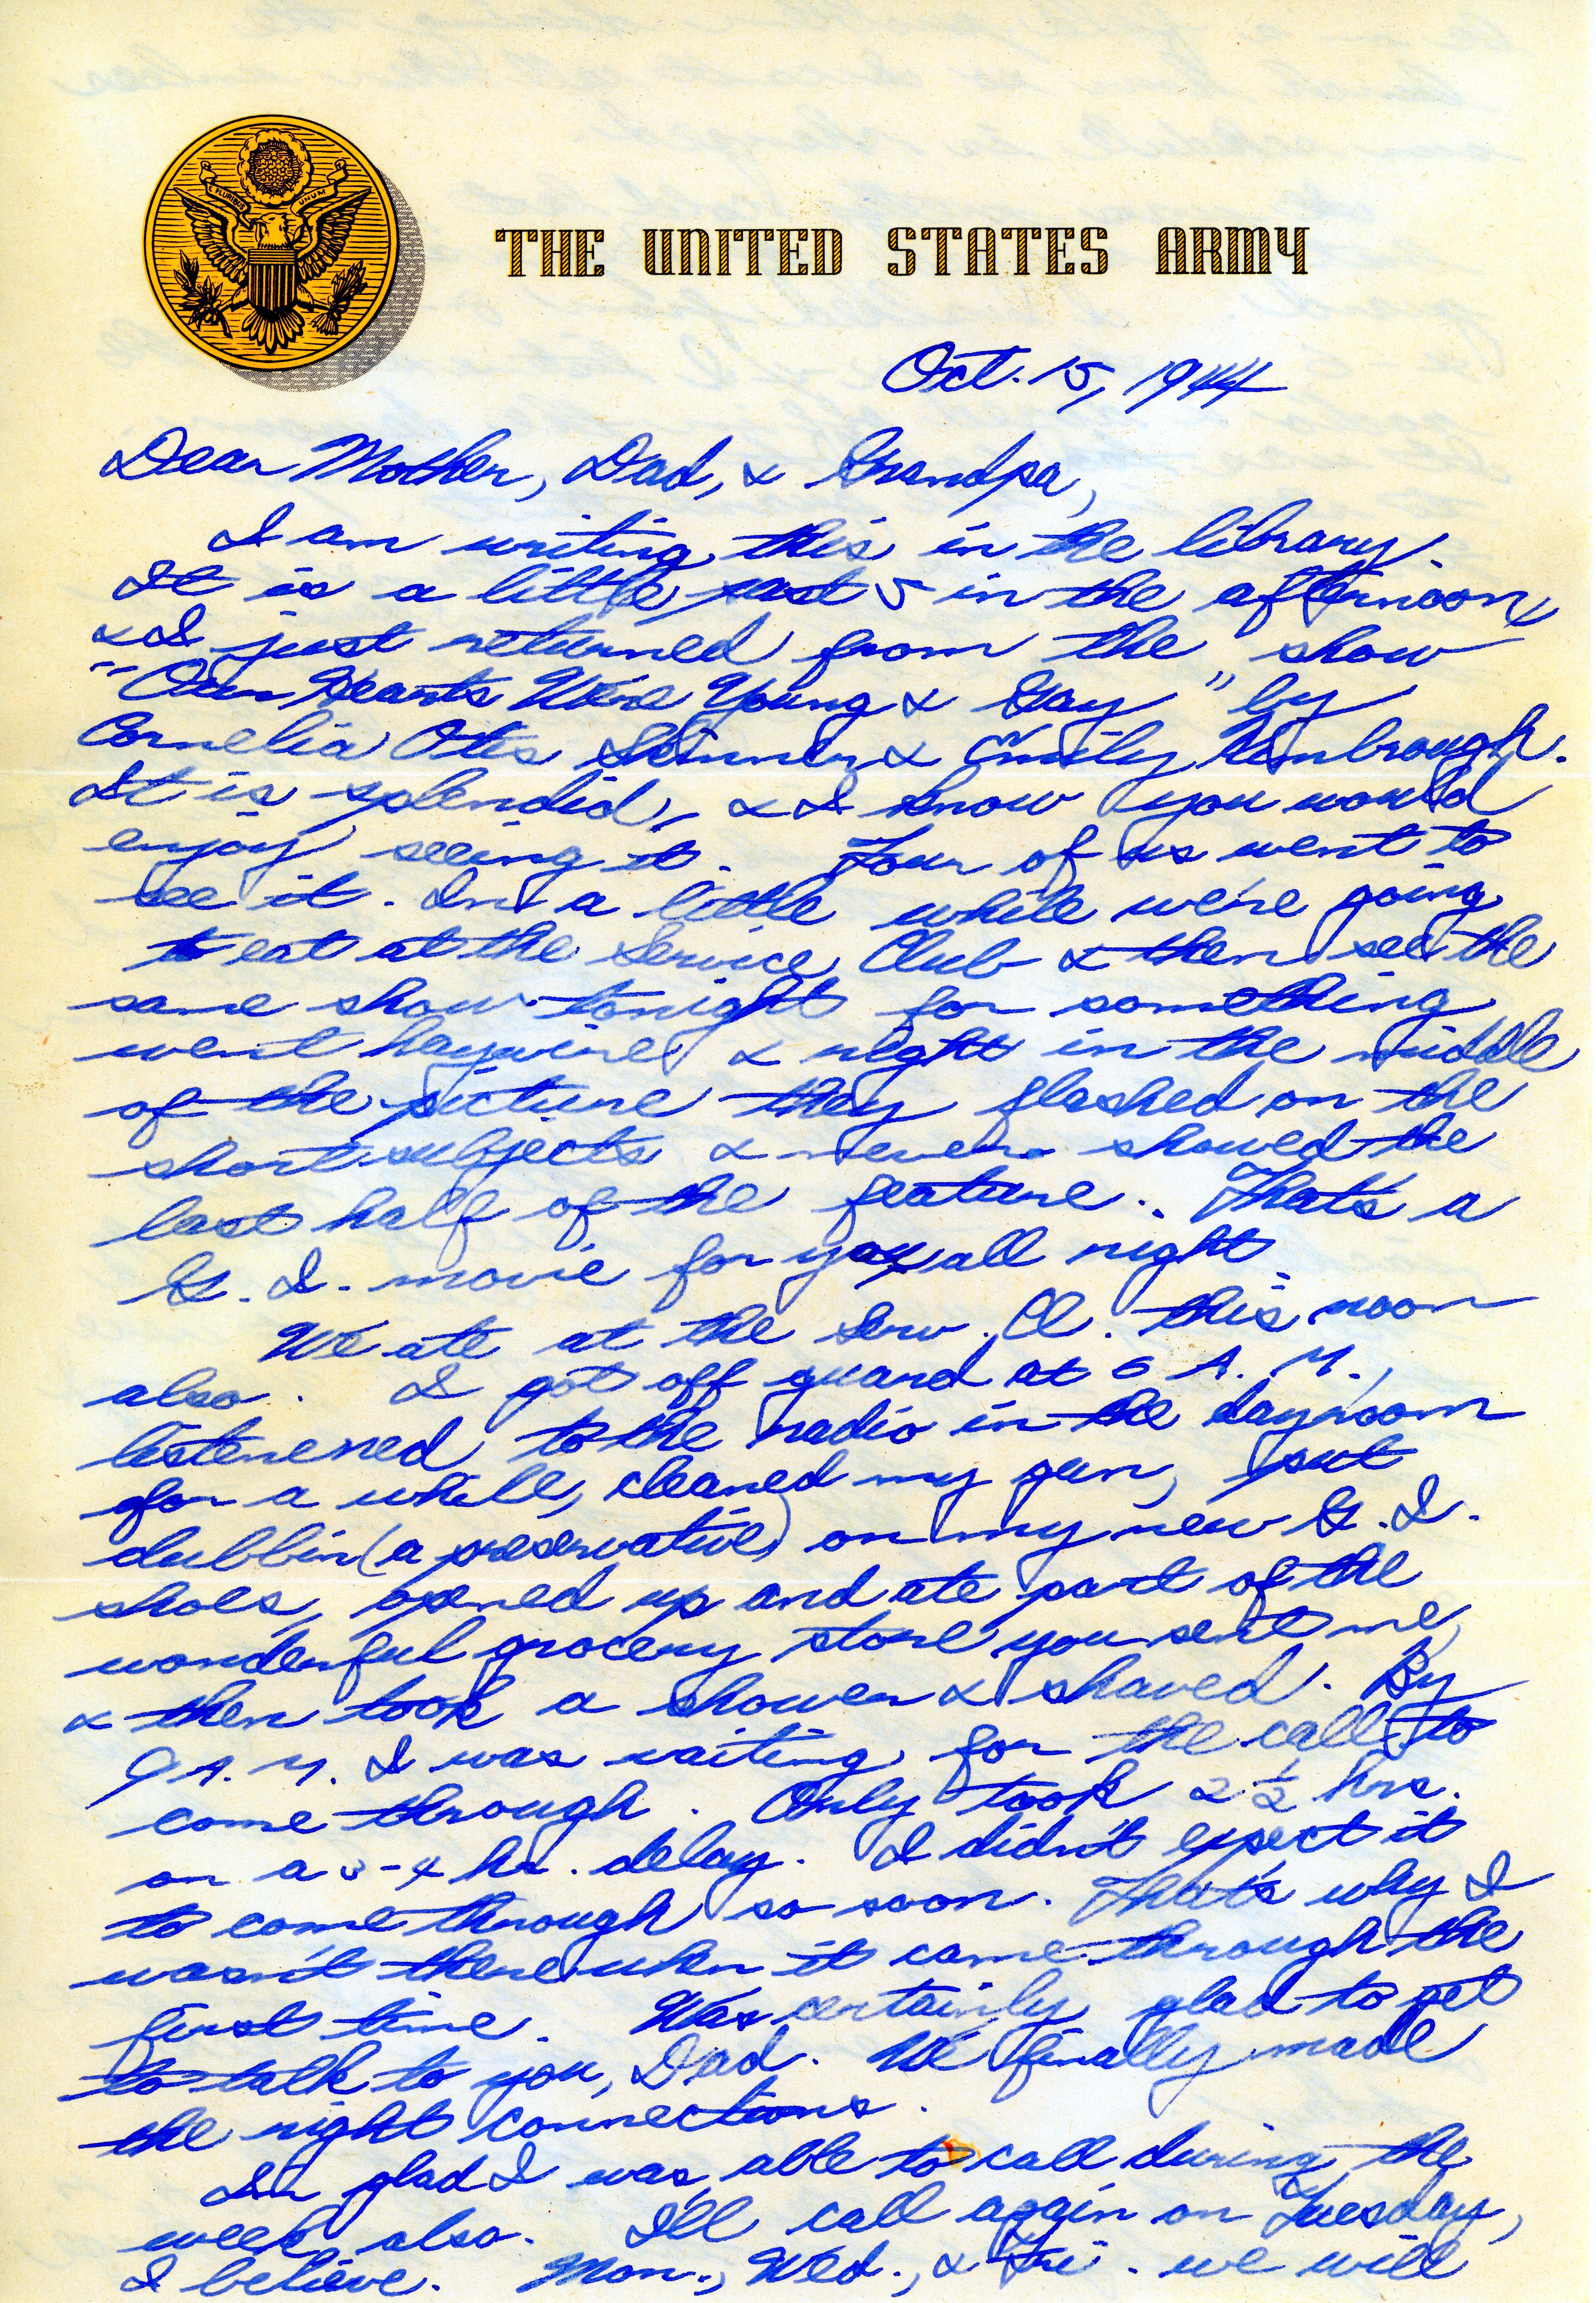 E PLURIBUS UNUM
THE UNITED STATES ARMY
Oct. 15, 1944
Dear Mother, Dad, & Grandpa,
I am writing this in the library.
It is a little past 5 in the afternoon,
& I just returned from the show
"Our Hearts Were Young & Gay" by
Cornelia Otis Skinner & Emily Kimbrough.
It is splendid, & I know you would
enjoy seeing it. Four of us went to
see it. In a little while we're going
to eat at the Service Club & then see the
same show tonight for something
went haywire & right in the middle
of the picture they flashed on the
short subjects & never showed the
last half of the feature. That's a
G. I. movie for you all right.
We ate at the Serv. Cl. this noon
also. I got off guard at 6 A. M.,
listened to the radio in the dayroom
for a while, cleaned my gun, put
dubbin (a preservative) on my new G. I.
shoes, opened up and ate part of the
wonderful grocery store you sent me,
& then took a shower & shaved. By
9 A. M. I was waiting for the call to
come through. Only took 2 1/2 hrs.
on a 3-4 hr. delay. I didn't expect it
to come through so soon. That's why I
wasn't there when it came through the
first time. Was certainly glad to get
to talk to you, Dad. We finally made
the right connections.
I'm glad I was able to call during the
week also. I'll call again on Tuesday,
I believe. Mon., Wed., & Fri. we will